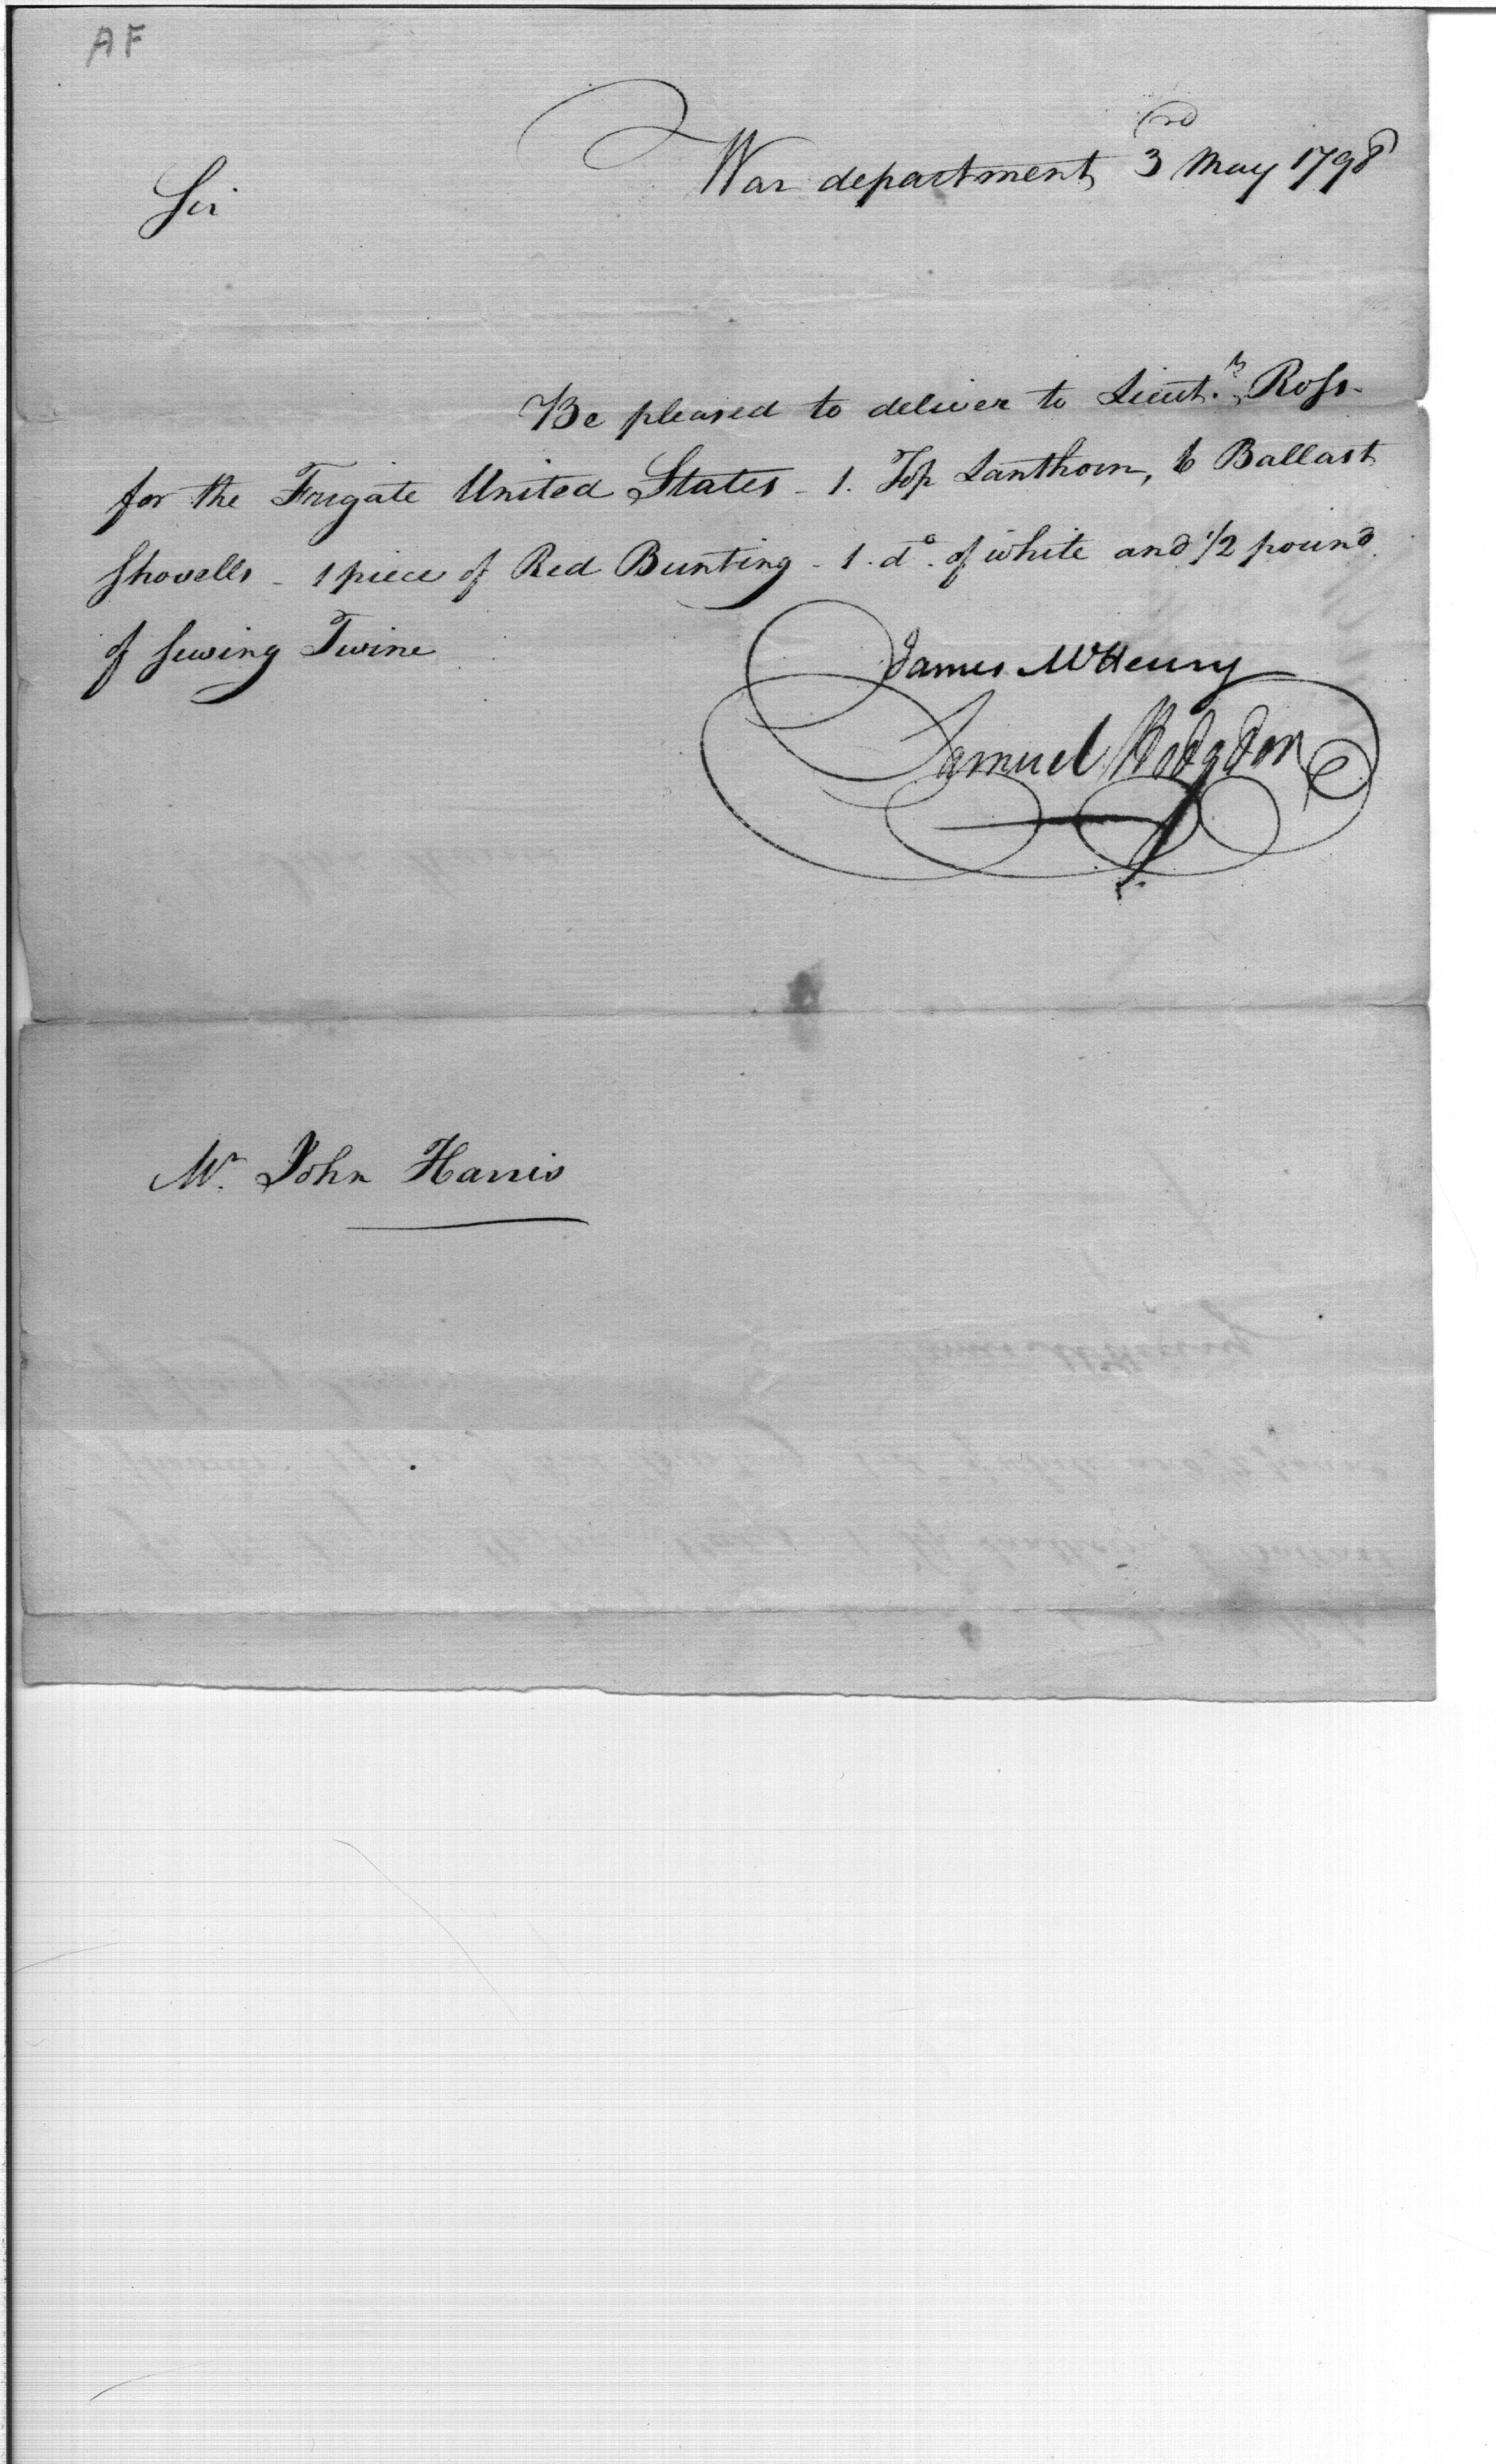 AF
War department 3rd May 1798
Sir
Be pleased to deliver to Lieut. Ross
for the Frigate United States - 1. Top Lanthorn, 6 Ballast
Shovells - 1 piece of Red Bunting - 1. do. of white and 1/2 pound
of sewing Twine
James McHenry
Samuel Hodgdon
Mr. John Harris